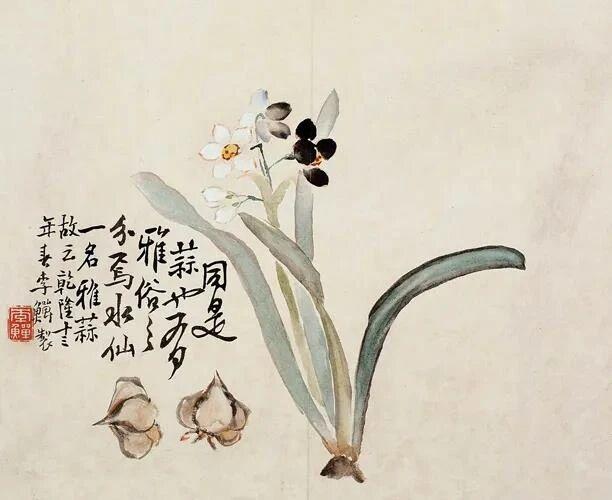 同是
蒜也有
雅俗之
分焉水仙
一名雅蒜
故云乾隆十三
年春李鱓製
李鱓